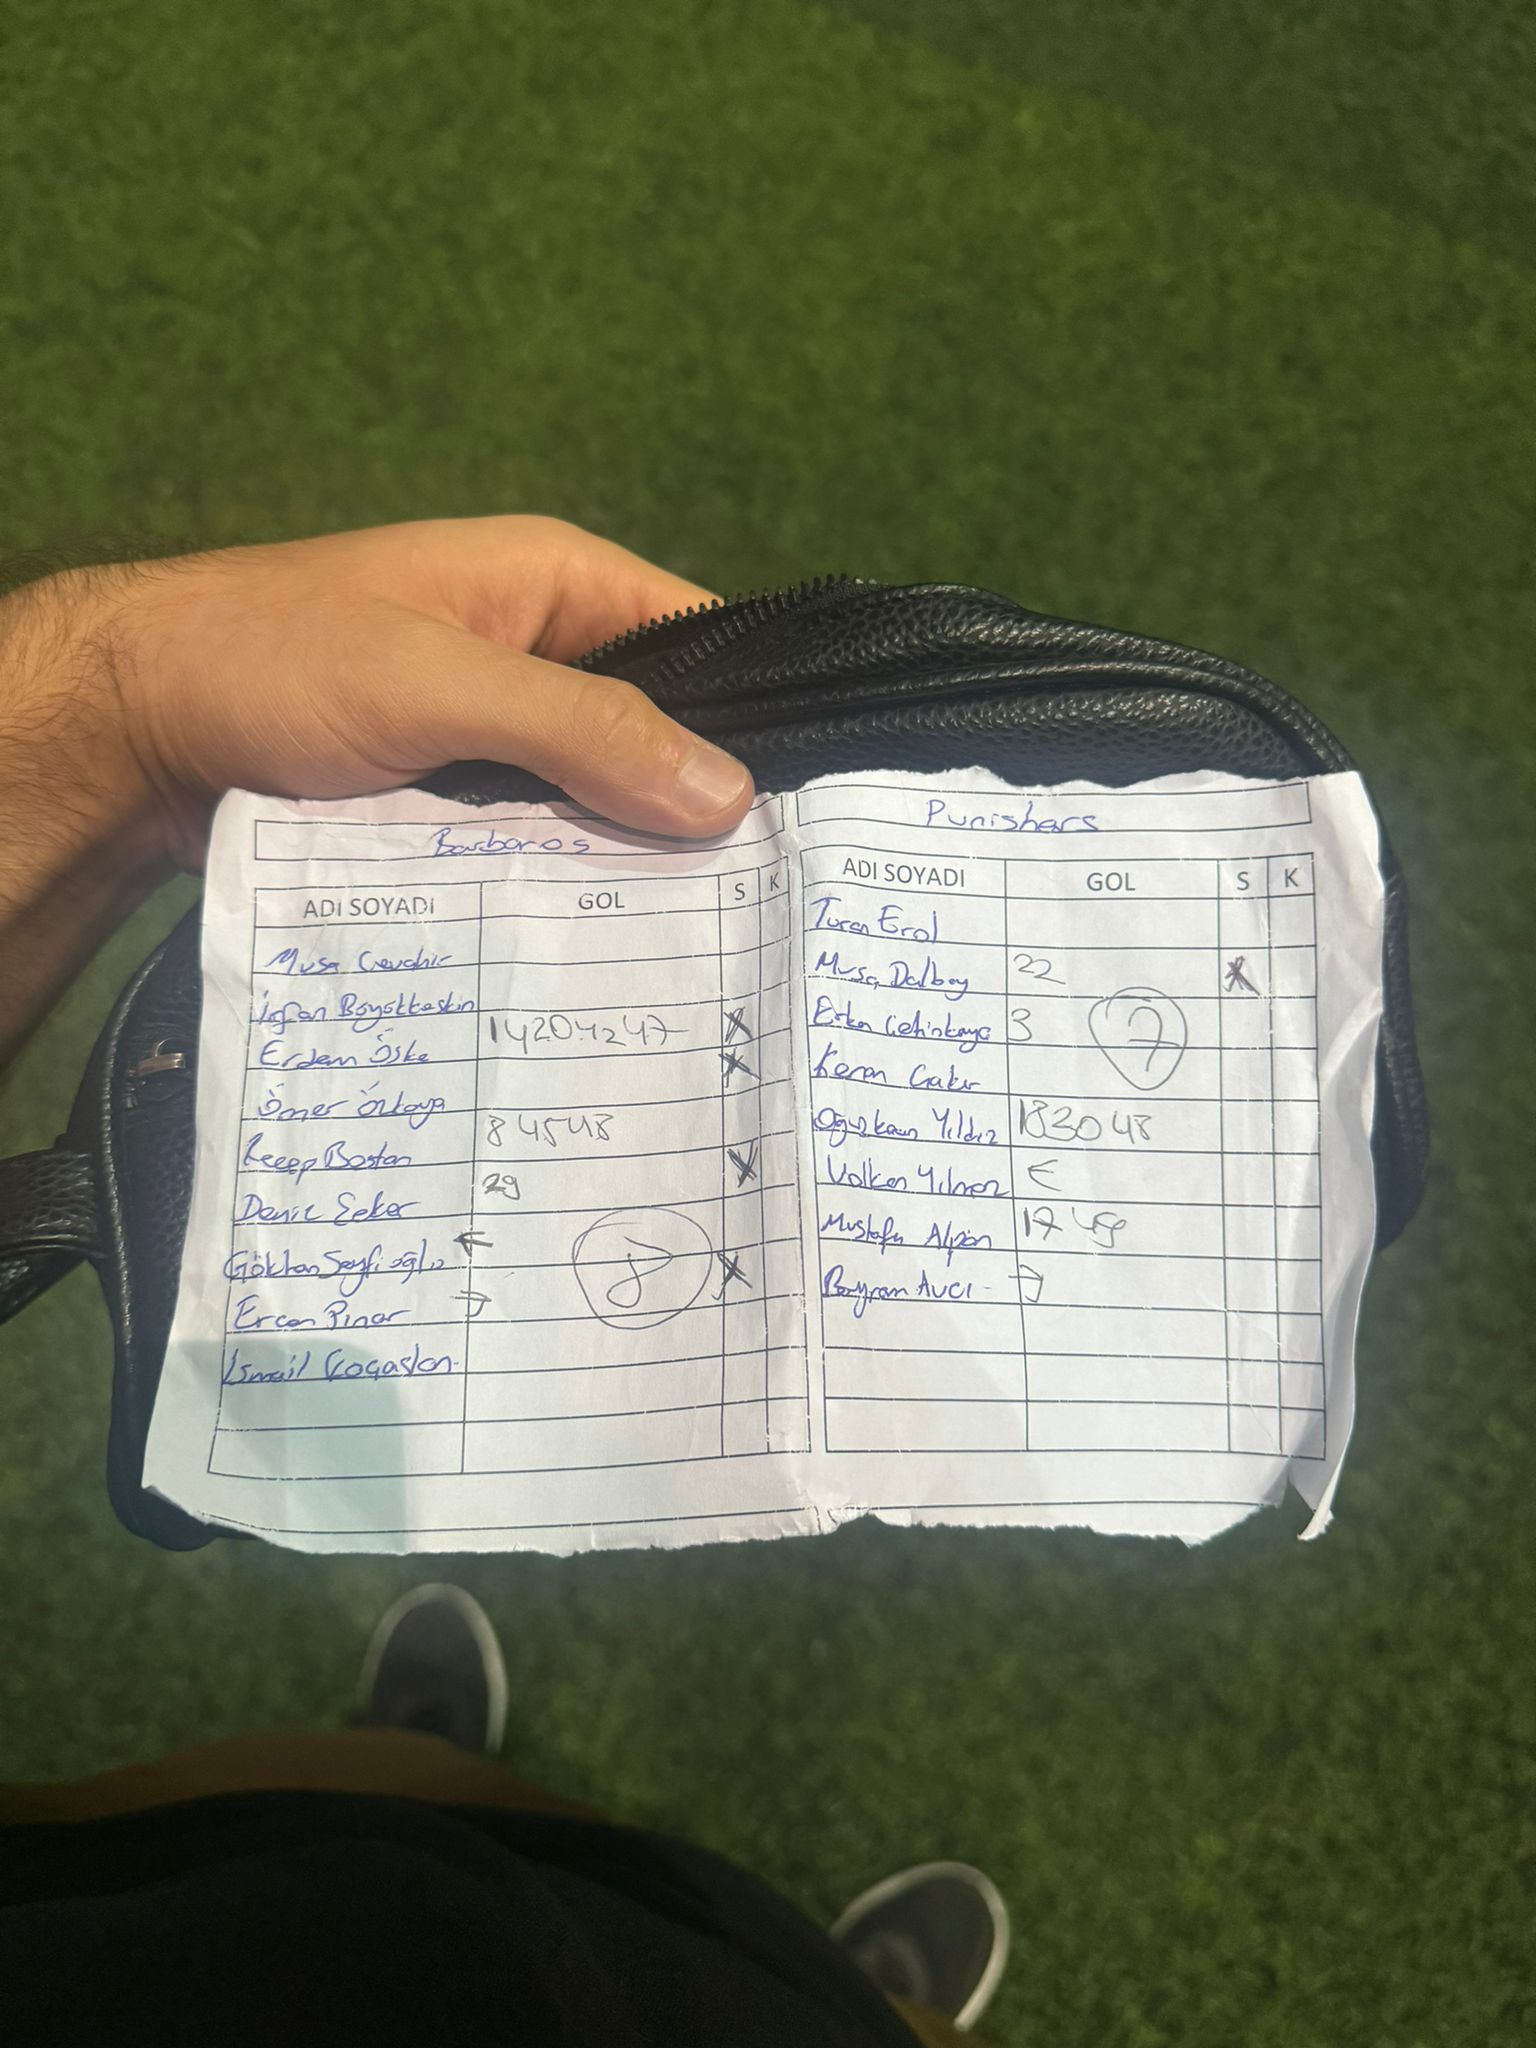 Barbaros
ADI SOYADI GOL S K
Musa Cevahir
İrfan Böyükkeskin
Erdem Öske 14 20 42 47 X
Ömer Özkaya X
Recep Bostan 8 45 48
Deniz Şeker 29 X
Gökhan Seyfioğlu ←
Ercan Pınar → 8 X
İsmail Kocaslan
Punishers
ADI SOYADI GOL S K
Turan Erol
Musa Dalboy 22 X
Çetinkaya 3 7
Kenan Çakır
Oğuzkaan Yıldız 18 30 48
Volkan Yılmaz ←
Mustafa Alpan 17 49
Bayram Avcı - →